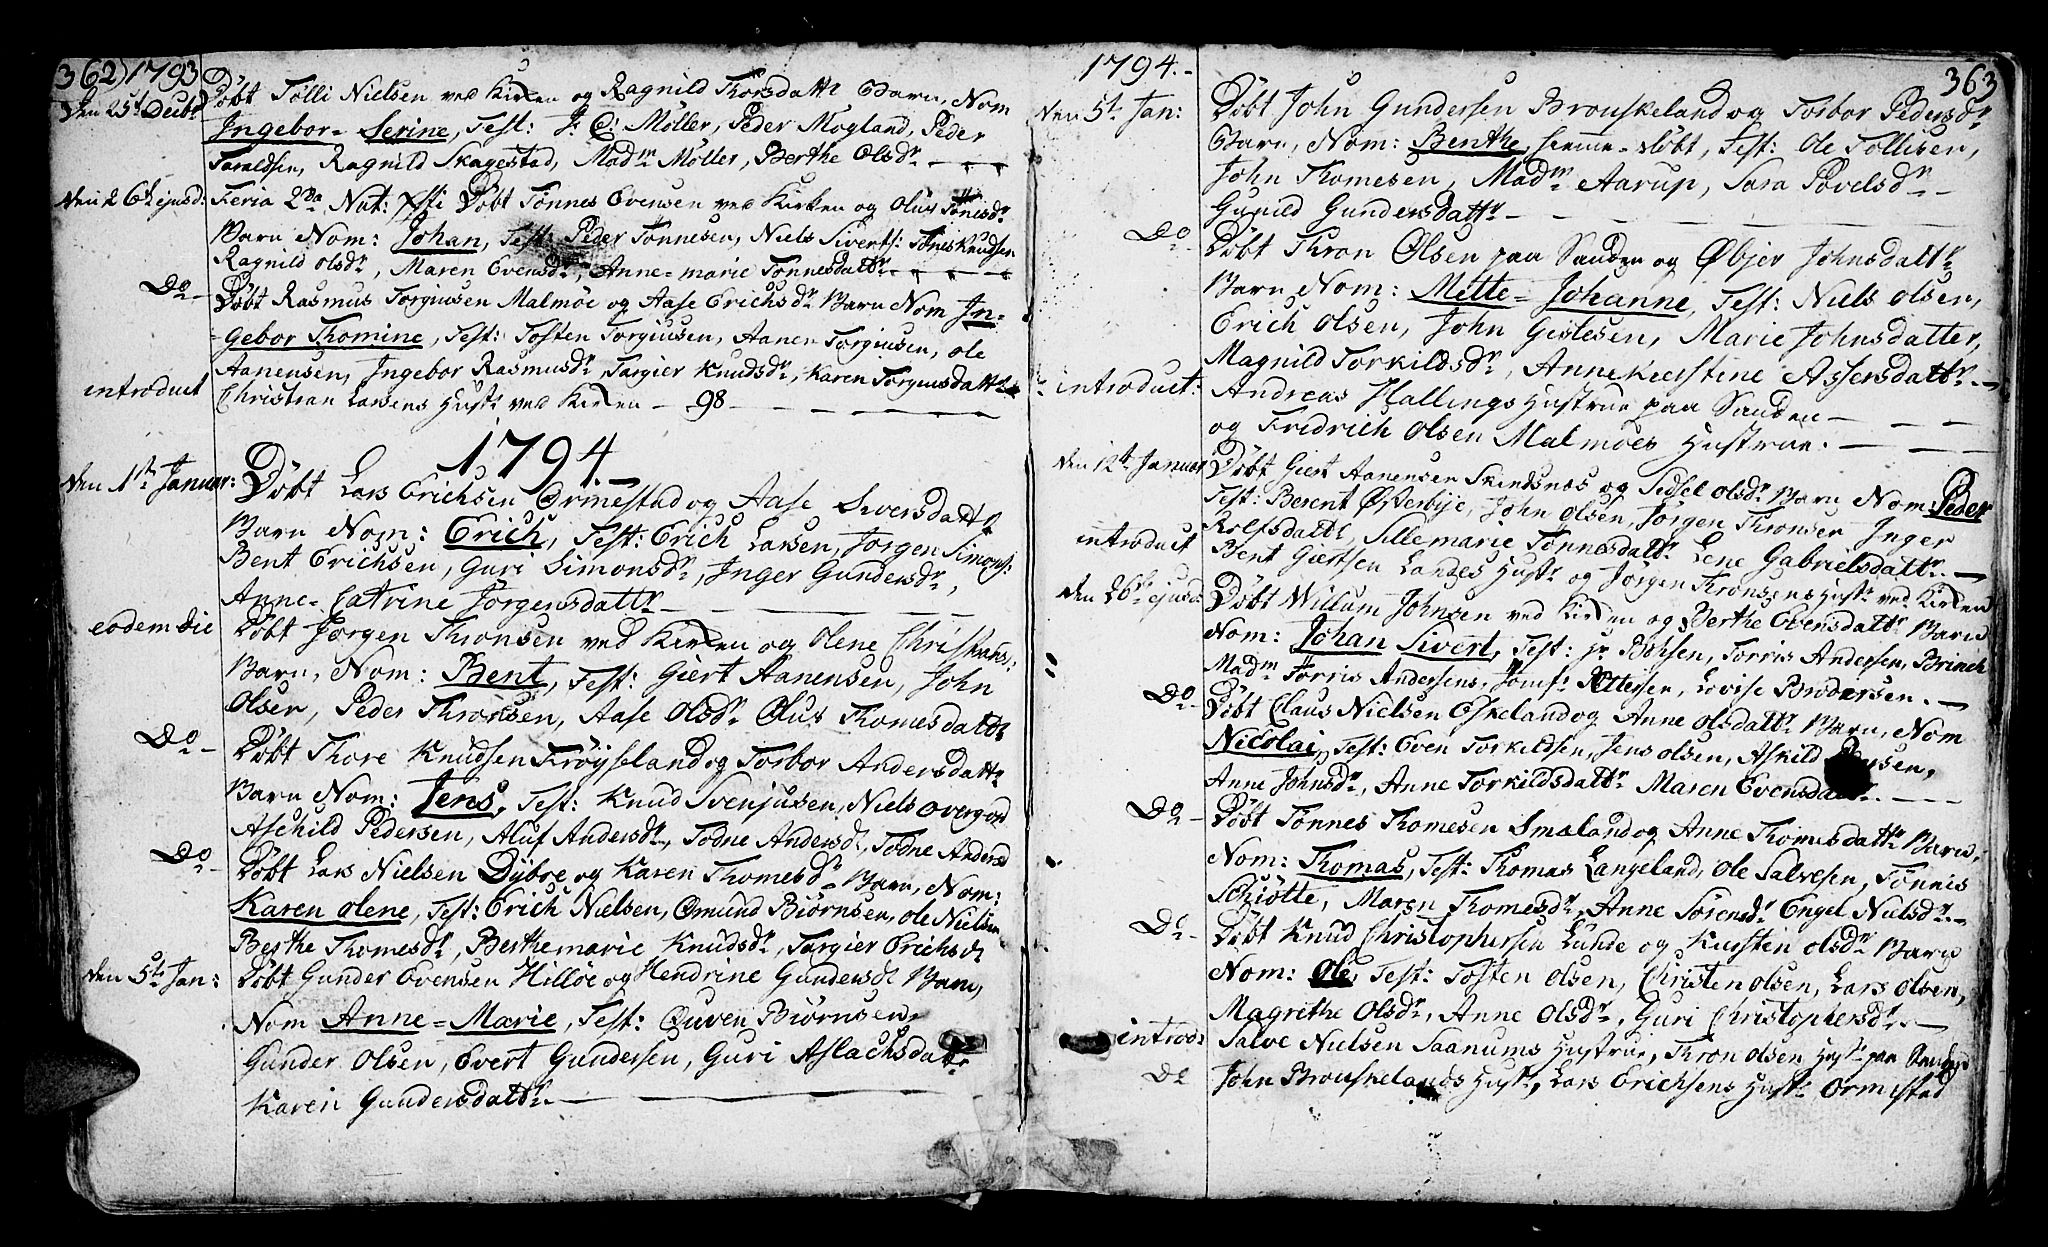 362) 1793
Den 25t Decbr Döbt Tölli Nielsen ved Kirken og Ragnild Thorsdattr Barn, Nom
Ingebor-Serine, Test: J: C: Möller, Peder Mogland, Peder
Taraldsen, Ragnild Skagestad, Madm Möller, Berthe Olsdr
Den 26t ejusd: Feria 2da Nat: Xsti Döbt Tönnes Evensen ved Kirken og Oluf Tönisdr
Barn Nom: Johan, Test: Peder Tönnesen, Niels Siverts: Tönis Knudsen
Ragnild Olsdr, Maren Evensdr, Anne-marie Tönnesdattr
Do Döbt Rasmus Torgiusen Malmöe og Aase Erichsdr Barn Nom In-
gebor Thomine, Test: Tosten Torgiusen, Aanen Torgiusen, Ole
Aanensen, Ingebor Rasmusdr Targier Knudsdr, Karen Torgiusdattr
introduct Christian Larsens Hustr ved Kirken - 98
1794
Den 1te Januar: Döbt Lars Erichsen Ormestad og Aase Siversdattr
Barn Nom: Erich, Test: Erich Larsen, Jörgen Simons:
Bent Erichsen, Guri Simonsdr, Inger Gundersdr,
Anne-Catrine Jörgensdattr
eodem die Döbt Jörgen Thronsen ved Kirken og Olene Christians:
Barn, Nom: Bent, Test: Giert Aanensen, John
Olsen, Peder Thronsen, Aase Olsdr Oluf Thomesdattr
Do Döbt Thore Knudsen Fröysland og Torbor Andersdattr
Barn Nom: Jens, Test: Knud Svenjusen, Niels Overgord
Aschild Pedersen, Aluf Andersdr, Todne Andersd, Todne Andersd
Do Döbt Lars Nielsen Dybve og Karen Thomesdr Barn, Nom:
Karen Olene, Test: Erich Nielsen, Omund Biörnsen, Ole Nielsen
Berthe Thomesdr, Berthemarie Knudsdr, Targier Erichsd
Den 5te Jan: Döbt Gunder Evensen Hilløe og Hendrine Gundersd Barn,
Nom Anne-Marie, Test: Ouven Biörnsen,
Gunder Olsen, Evert Gundersen, Guri Aslachsdattr
Karen Gundersdattr
1794. 363
Den 5t Jan: Döbt John Gundersen Brouskeland og Torbor Pedersdr
Barn, Nom: Benthe, hiemme-döbt, Test: Ole Tollisen,
John Thomesen, Madm Aarup, Sara Povelsdr
Gunild Gundersdattr
Do Döbt Thron Olsen paa Sanden og Objer Johnsdattr
Barn Nom: Mette-Johanne, Test: Niels Olsen,
Erich Olsen, John Geslesen, Marie Johnsdatter,
Magnild Torkildsdr, Annekierstine Assersdattr
introduct: Andreas Hallings Hustrue paa Sanden
og Fredrich Olsen Malmöes Hustrue.
Den 12t Januar Döbt Giert Aanensen Skindsnæs og Sidsel Olsdr Barn Nom: Peder
Test: Berent Østerbye, John Olsen, Jörgen Thronsen Inger
Rolfsdattr, Sillemarie Tönnesdattr Lene Gabrielsdattr
introduct Bent Giertsen Landes Hustr og Jörgen Thronsens Hustr ved Kirken
Den 26t ejusd Döbt Willum Johnsen ved Kirken og Berthe Evensdattr Barn
Nom: Johan Sivert, Test: Jr Bohsen, Torris Andersen, Brinch
Madm Torris Andersens, Jomfr Pettersen, Lovise Brodersen.
Do Döbt Claus Nielsen Eskeland og Anne Olsdattr Barn, Nom
Nicolai, Test: Even Torkildsen, Jens Olsen, Askild
Anne Johnsdr, Anne Torkildsdattr Maren Evensdattr
Do Döbt Tönnes Thomesen Smaland og Anne Thomesdattr Barn,
Nom: Thomas, Test: Thomas Langeland, Ole Salvesen, Tönnis
Schiötte, Maren Thomesdr, Anne Sörensdr Engel Nielsdr
Do Döbt Knud Christophersen Lunde og Kirsten Olsdr Barn
Nom: Ole, Test: Tosten Olsen, Christen Olsen, Lars Olsen,
Magrethe Olsdr, Anne Olsdr, Guri Christophersdr
introd: Salve Nielsen Saanums Hustrue, Thron Olsen Hustr paa Sanden
Do John Brouskelands Hustr, Lars Erichsens Hustr Ormestad